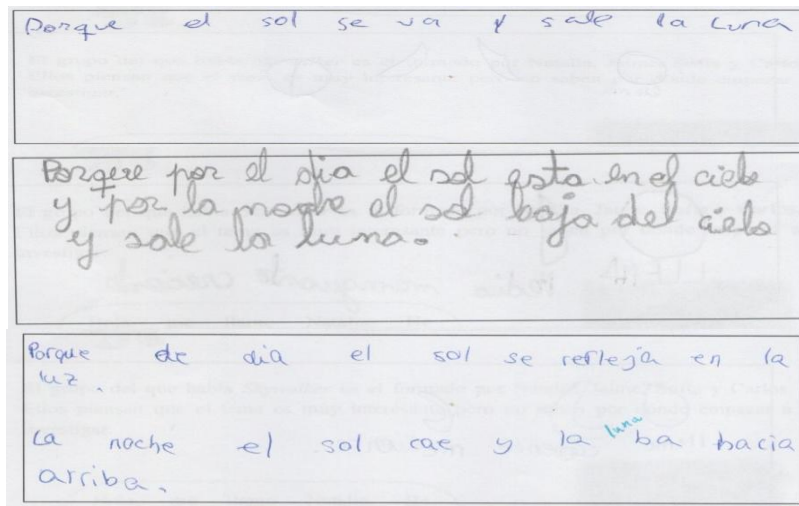 Porque el sol se va y sale la Luna
Porque por el dia el sol esta en el cielo
y por la noche el sol baja del cielo
y sale la luna.
Porque de dia el sol se refleja en la
luz.
La noche el sol cae y la luna ba hacia
arriba.